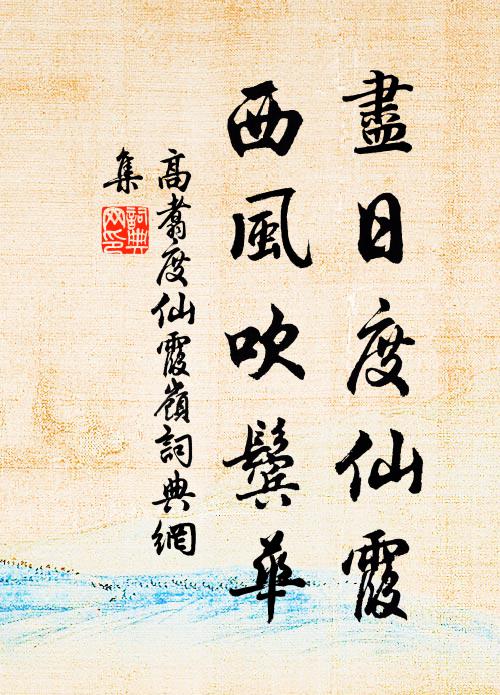 盡日度仙霞
西風吹鬢華
高翥度仙霞嶺詞典網
集
詞典
网印